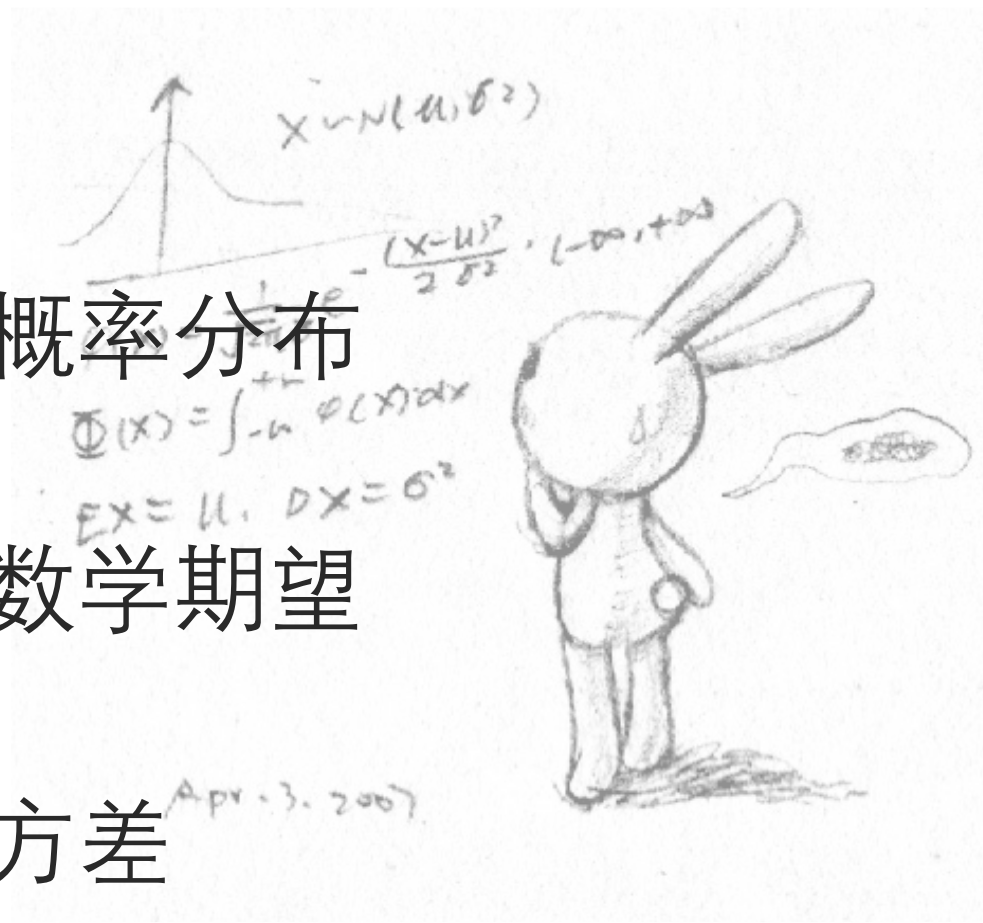 X ~ N(μ, σ²)
- (x-μ)²/2σ² . (-∞, +∞)
概率分布
Φ(x) = ∫ φ(x)dx
EX = μ. DX = σ²
数学期望
Apr. 3. 2007
方差